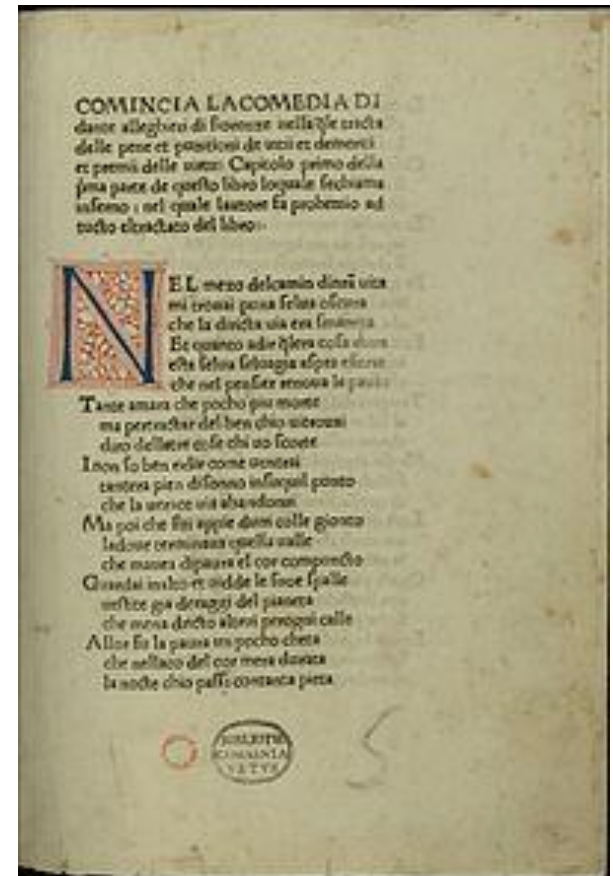 COMINCIA LACOMEDIA DI
dante alleghieri di fiorenze nella q̃le tracta
delle pene et punitioni de uitii et demeriti
et premii delle uirtu: Capitolo primo della
p̃ma parte de questo libro loquale sechiama
inferno : nel quale lautore fa prohemio ad
tucto eltractato del libro:·
NEL mezo delcamin dinr̃a uita
mi trouai puna selua oscura
che la diricta uia era smarrita
Et quanto adir q̃lera cosa dura
esta selua seluagia aspra eforte
che nel pensier renoua la paura
Tante amara che pocho piu morte
ma pertractar del ben chio uitrouai
diro dellatre cose chi uo scorte
I non so ben ridir come uentrai
tantera pien disonno insuquil punto
che la uerace uia abandonai
Ma poi che fui appie dum colle gionto
ladoue terminaua quella ualle
che mauea dipaura el cor compuncto
Guardai inalto et uidde le sue spalle
uestite gia deraggi del pianeta
che mena dricto altrui perogni calle
Allor fu la paura un pocho cheta
che nellaco del cor mera durata
la nocte chio passi contanta pieta
BIBLIOTH
COMMUNIA
VETVS